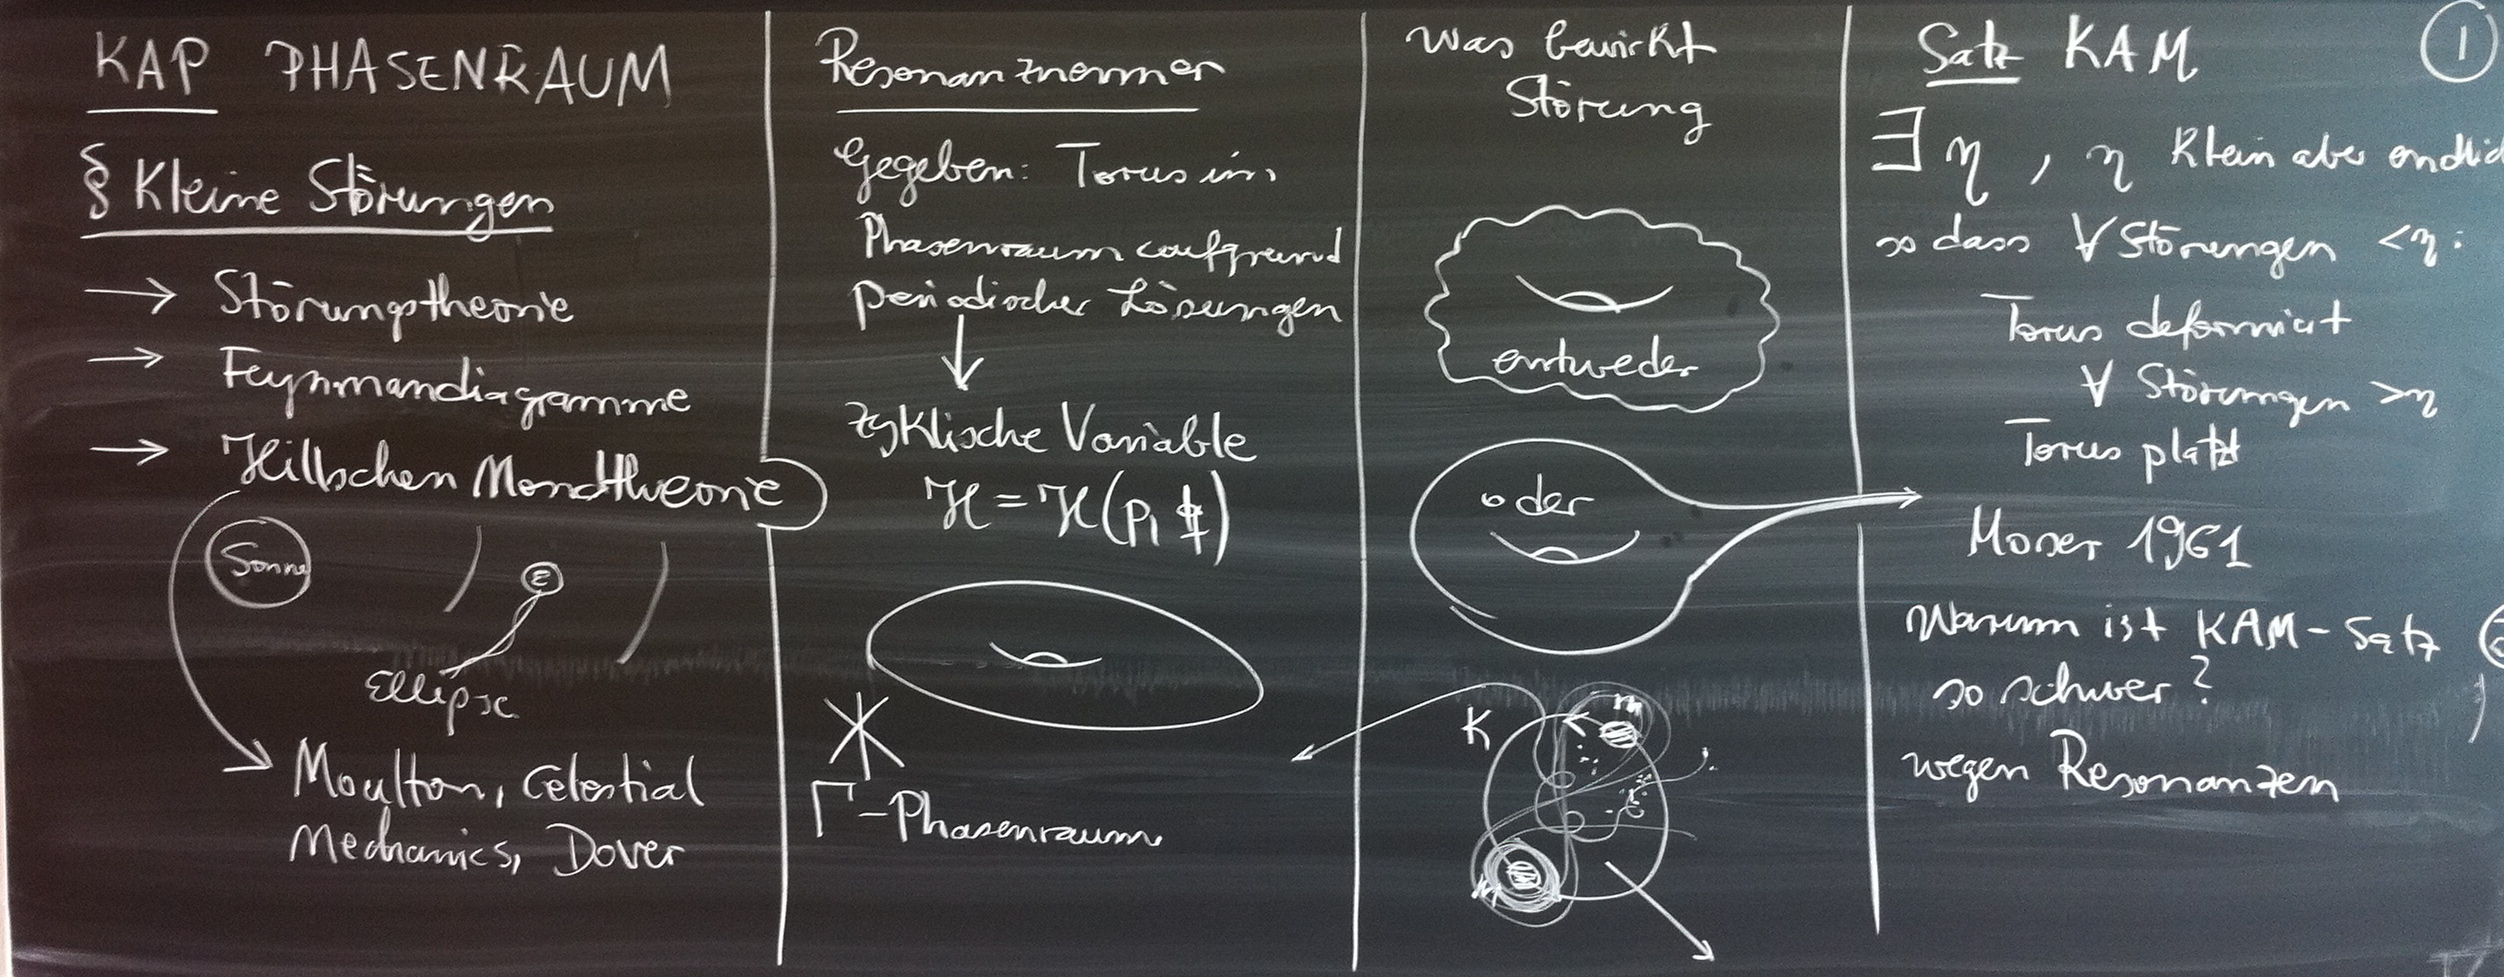 KAP PHASENRAUM
§ Kleine Störungen
→ Störungstheorie
→ Feynmandiagramme
→ Hillschen Mondtheorie
Sonne
Ellipse
Moulton, Celestial
Mechanics, Dover
Resonanznenner
Gegeben: Torus im
Phasenraum aufgrund
periodischer Lösungen
↓
zyklische Variable
H = H(p, q)
Γ-Phasenraum
Was bewirkt
Störung
entweder
oder
K
m
M
Satz KAM
1
∃ η, η klein aber endlich
so dass ∀ Störungen < η:
Torus deformiert
∀ Störungen > η
Torus platzt
Moser 1961
Warum ist KAM-Satz
so schwer?
wegen Resonanzen